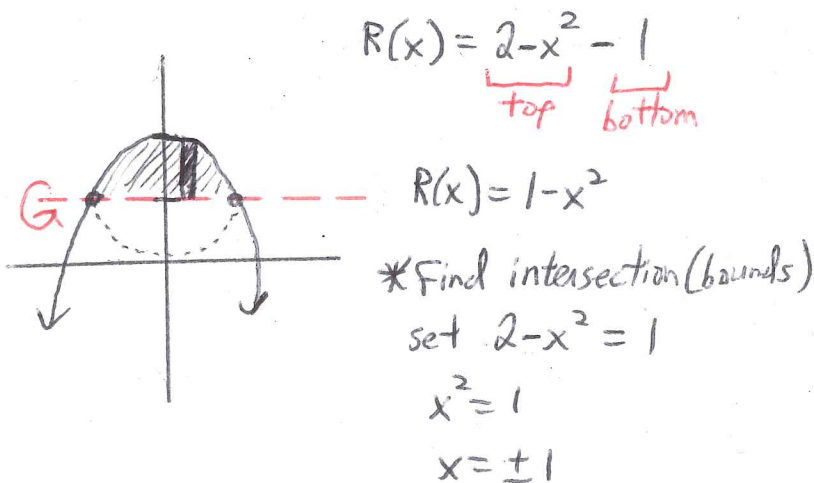 R(x) = 2-x² - 1
top bottom
G
R(x) = 1-x²
*Find intersection (bounds)
set 2-x² = 1
x² = 1
x = ± 1